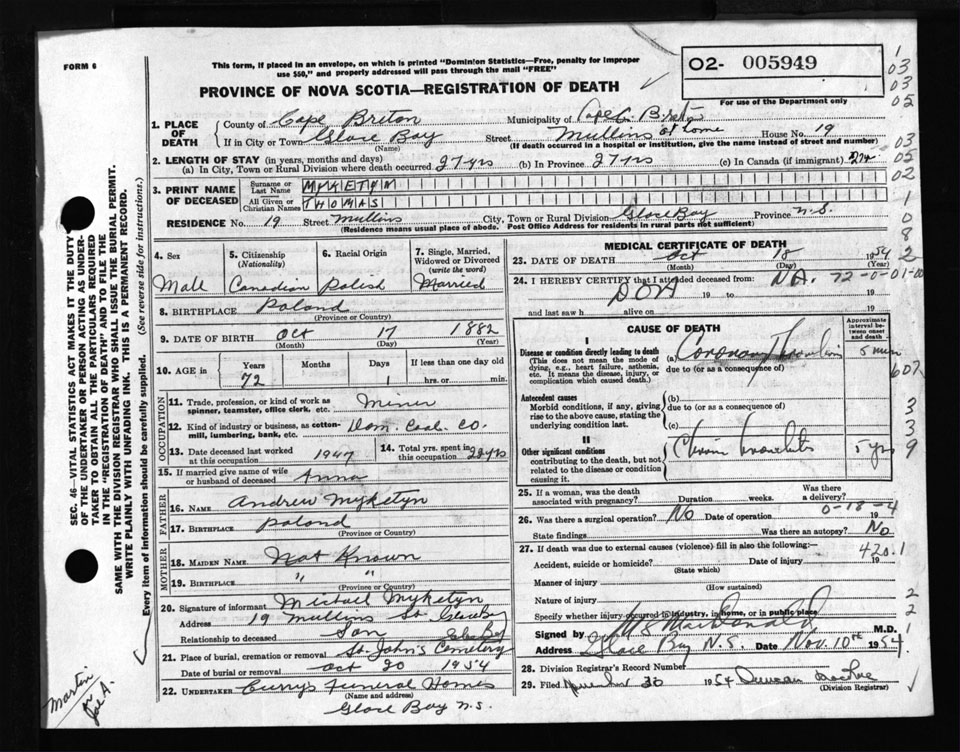 FORM 6
This form, if placed in an envelope, on which is printed "Dominion Statistics—Free, penalty for improper
use $50," and properly addressed will pass through the mail "FREE"
O2- 005949
For use of the Department only
PROVINCE OF NOVA SCOTIA—REGISTRATION OF DEATH
1. PLACE OF DEATH
County of Cape Breton Municipality of Cape Breton
If in City or Town Glace Bay Street Mullins at home House No. 19
(Name) (If death occurred in a hospital or institution, give the name instead of street and number)
2. LENGTH OF STAY (in years, months and days)
(a) In City, Town or Rural Division where death occurred 27 yrs (b) In Province 27 yrs (c) In Canada (if immigrant)
3. PRINT NAME OF DECEASED
Surname or Last Name MYKETYN
All Given or Christian Names THOMAS
RESIDENCE No. 19 Street Mullins City, Town or Rural Division Glace Bay Province N.S.
(Residence means usual place of abode. Post Office Address for residents in rural parts not sufficient)
4. Sex
Male
5. Citizenship (Nationality)
Canadian
6. Racial Origin
Polish
7. Single, Married, Widowed or Divorced (write the word)
Married
8. BIRTHPLACE Poland
(Province or Country)
9. DATE OF BIRTH Oct 17 1882
(Month) (Day) (Year)
10. AGE in Years Months Days If less than one day old
72 1 hrs. or min.
OCCUPATION
11. Trade, profession, or kind of work as spinner, teamster, office clerk, etc. Miner
12. Kind of industry or business, as cotton-mill, lumbering, bank, etc. Dom. Coal Co.
13. Date deceased last worked at this occupation 1947
14. Total yrs. spent in this occupation
15. If married give name of wife or husband of deceased Anna
FATHER
16. NAME Andrew Myketyn
17. BIRTHPLACE Poland
(Province or Country)
MOTHER
18. MAIDEN NAME Not Known
19. BIRTHPLACE " "
(Province or Country)
20. Signature of informant Michael Myketyn
Address 19 Mullins St Glace Bay
Relationship to deceased Son Glace Bay
21. Place of burial, cremation or removal St. John's Cemetery
Date of burial or removal Oct 20 1954
22. UNDERTAKER Curry's Funeral Homes
(Name and address)
Glace Bay N.S.
MEDICAL CERTIFICATE OF DEATH
23. DATE OF DEATH Oct 18 1954
(Month) (Day) (Year)
24. I HEREBY CERTIFY that I attended deceased from: NA 72-0-01-00
DOA 19 to 19
and last saw h alive on 19
CAUSE OF DEATH
Approximate interval between onset and death
I
Disease or condition directly leading to death
(This does not mean the mode of dying, e.g., heart failure, asthenia, etc. It means the disease, injury, or complication which caused death.)
(a) Coronary Thrombosis 5 min
due to (or as a consequence of)
Antecedent causes
Morbid conditions, if any, giving rise to the above cause, stating the underlying condition last.
(b)
due to (or as a consequence of)
(c)
II
Other significant conditions
contributing to the death, but not related to the disease or condition causing it.
5 yrs
25. If a woman, was the death associated with pregnancy? Duration weeks. Was there a delivery?
26. Was there a surgical operation? No Date of operation 19
0-18-4
State findings Was there an autopsy? No
27. If death was due to external causes (violence) fill in also the following:—
420.1
Accident, suicide or homicide? Date of injury 19
(State which)
Manner of injury
(How sustained)
Nature of injury
Specify whether injury occurred in industry, in home, or in public place
Signed by MacDonald M.D.
Address Glace Bay N.S. Date Nov. 10th 1954
28. Division Registrar's Record Number
29. Filed November 30 1954 Duncan
(Division Registrar)
SEC. 46—VITAL STATISTICS ACT MAKES IT THE DUTY
OF THE UNDERTAKER OR PERSON ACTING AS UNDER-
TAKER TO OBTAIN ALL THE PARTICULARS REQUIRED
IN THE "REGISTRATION OF DEATH" AND TO FILE THE
SAME WITH THE DIVISION REGISTRAR WHO SHALL ISSUE THE BURIAL PERMIT.
WRITE PLAINLY WITH UNFADING INK. THIS IS A PERMANENT RECORD.
Every item of information should be carefully supplied. (See reverse side for instructions.)
1
03
03
05
03
05
02
1
0
8
2
607
3
3
9
2
2
1